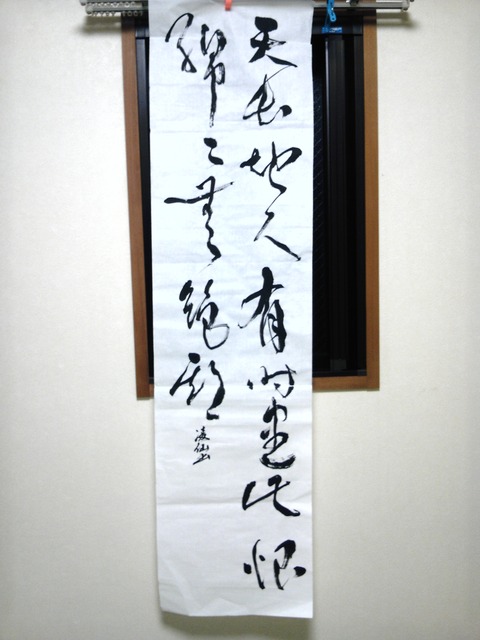 天長地久有時盡此恨
綿々無絶期
凌仙書